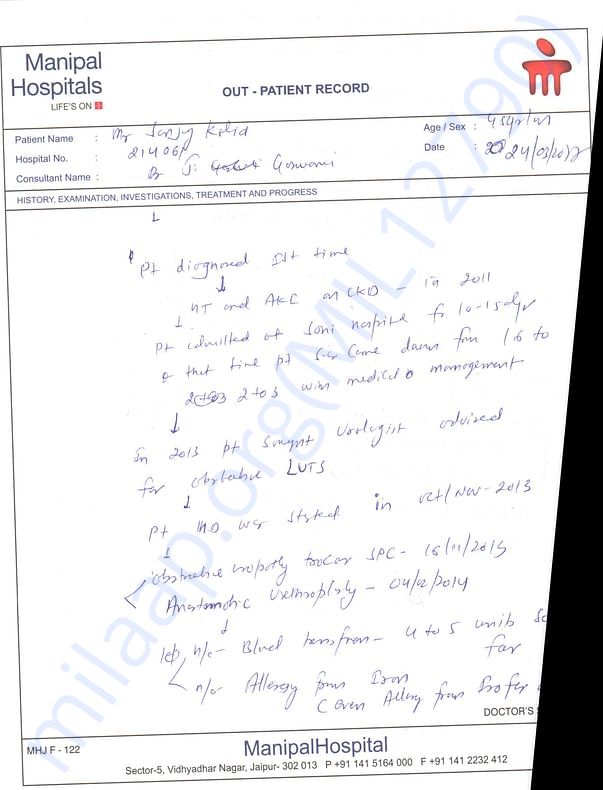 Manipal
Hospitals
LIFE'S ON
OUT - PATIENT RECORD
Patient Name : Mr Sanjay
Age / Sex :
Hospital No. : 214061
Date : 24/03/2017
Consultant Name : Dr J. Goswami
HISTORY, EXAMINATION, INVESTIGATIONS, TREATMENT AND PROGRESS
Pt diagnosed Ist time
HT and on CKD - in 2011
Pt admitted at Soni hospital for 10-15 days
that time pt S.Cr came down from 16 to
2 to 3 with medical management
In 2013 pt Urologist advised
for obstructive LUTS
Pt HD was started in oct/Nov - 2013
Obstructive uropathy trocar SPC -
Anastomotic Urethroplasty -
h/o - Blood transfusion - 4 to 5 units So
far
h/o Allergy from Iron
Allergy from
DOCTOR'S
MHJ F - 122
ManipalHospital
Sector-5, Vidhyadhar Nagar, Jaipur- 302 013 P +91 141 5164 000 F +91 141 2232 412
milaap.org(MIL127790)